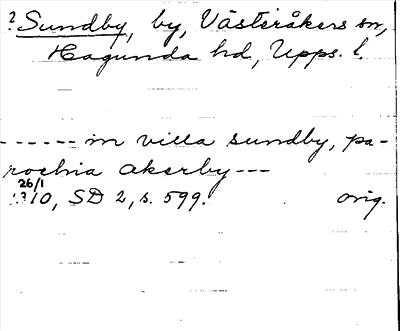 ? Sundby, by, Västeråkers sn,
Hagunda hd, Upps. l.
------ in villa sundby, pa-
rochia akerby ---
26/1
1310, SD 2, s. 599. orig.